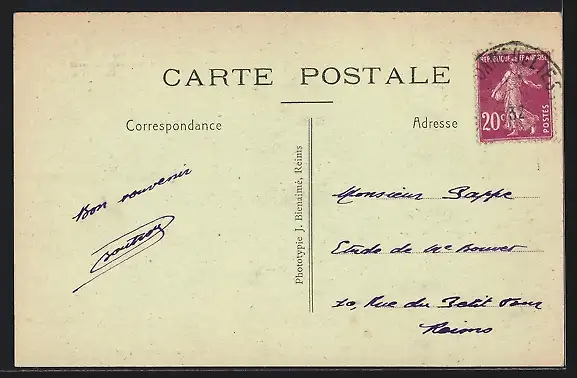 CARTE POSTALE
Correspondance
Adresse
REPUBLIQUE FRANÇAISE
20c
POSTES
32
Phototypie J. Bienaimé, Reims
Bon souvenir
Monsieur Pappe
Etude de Me Bouvet
10, Rue du Petit Four
Reims